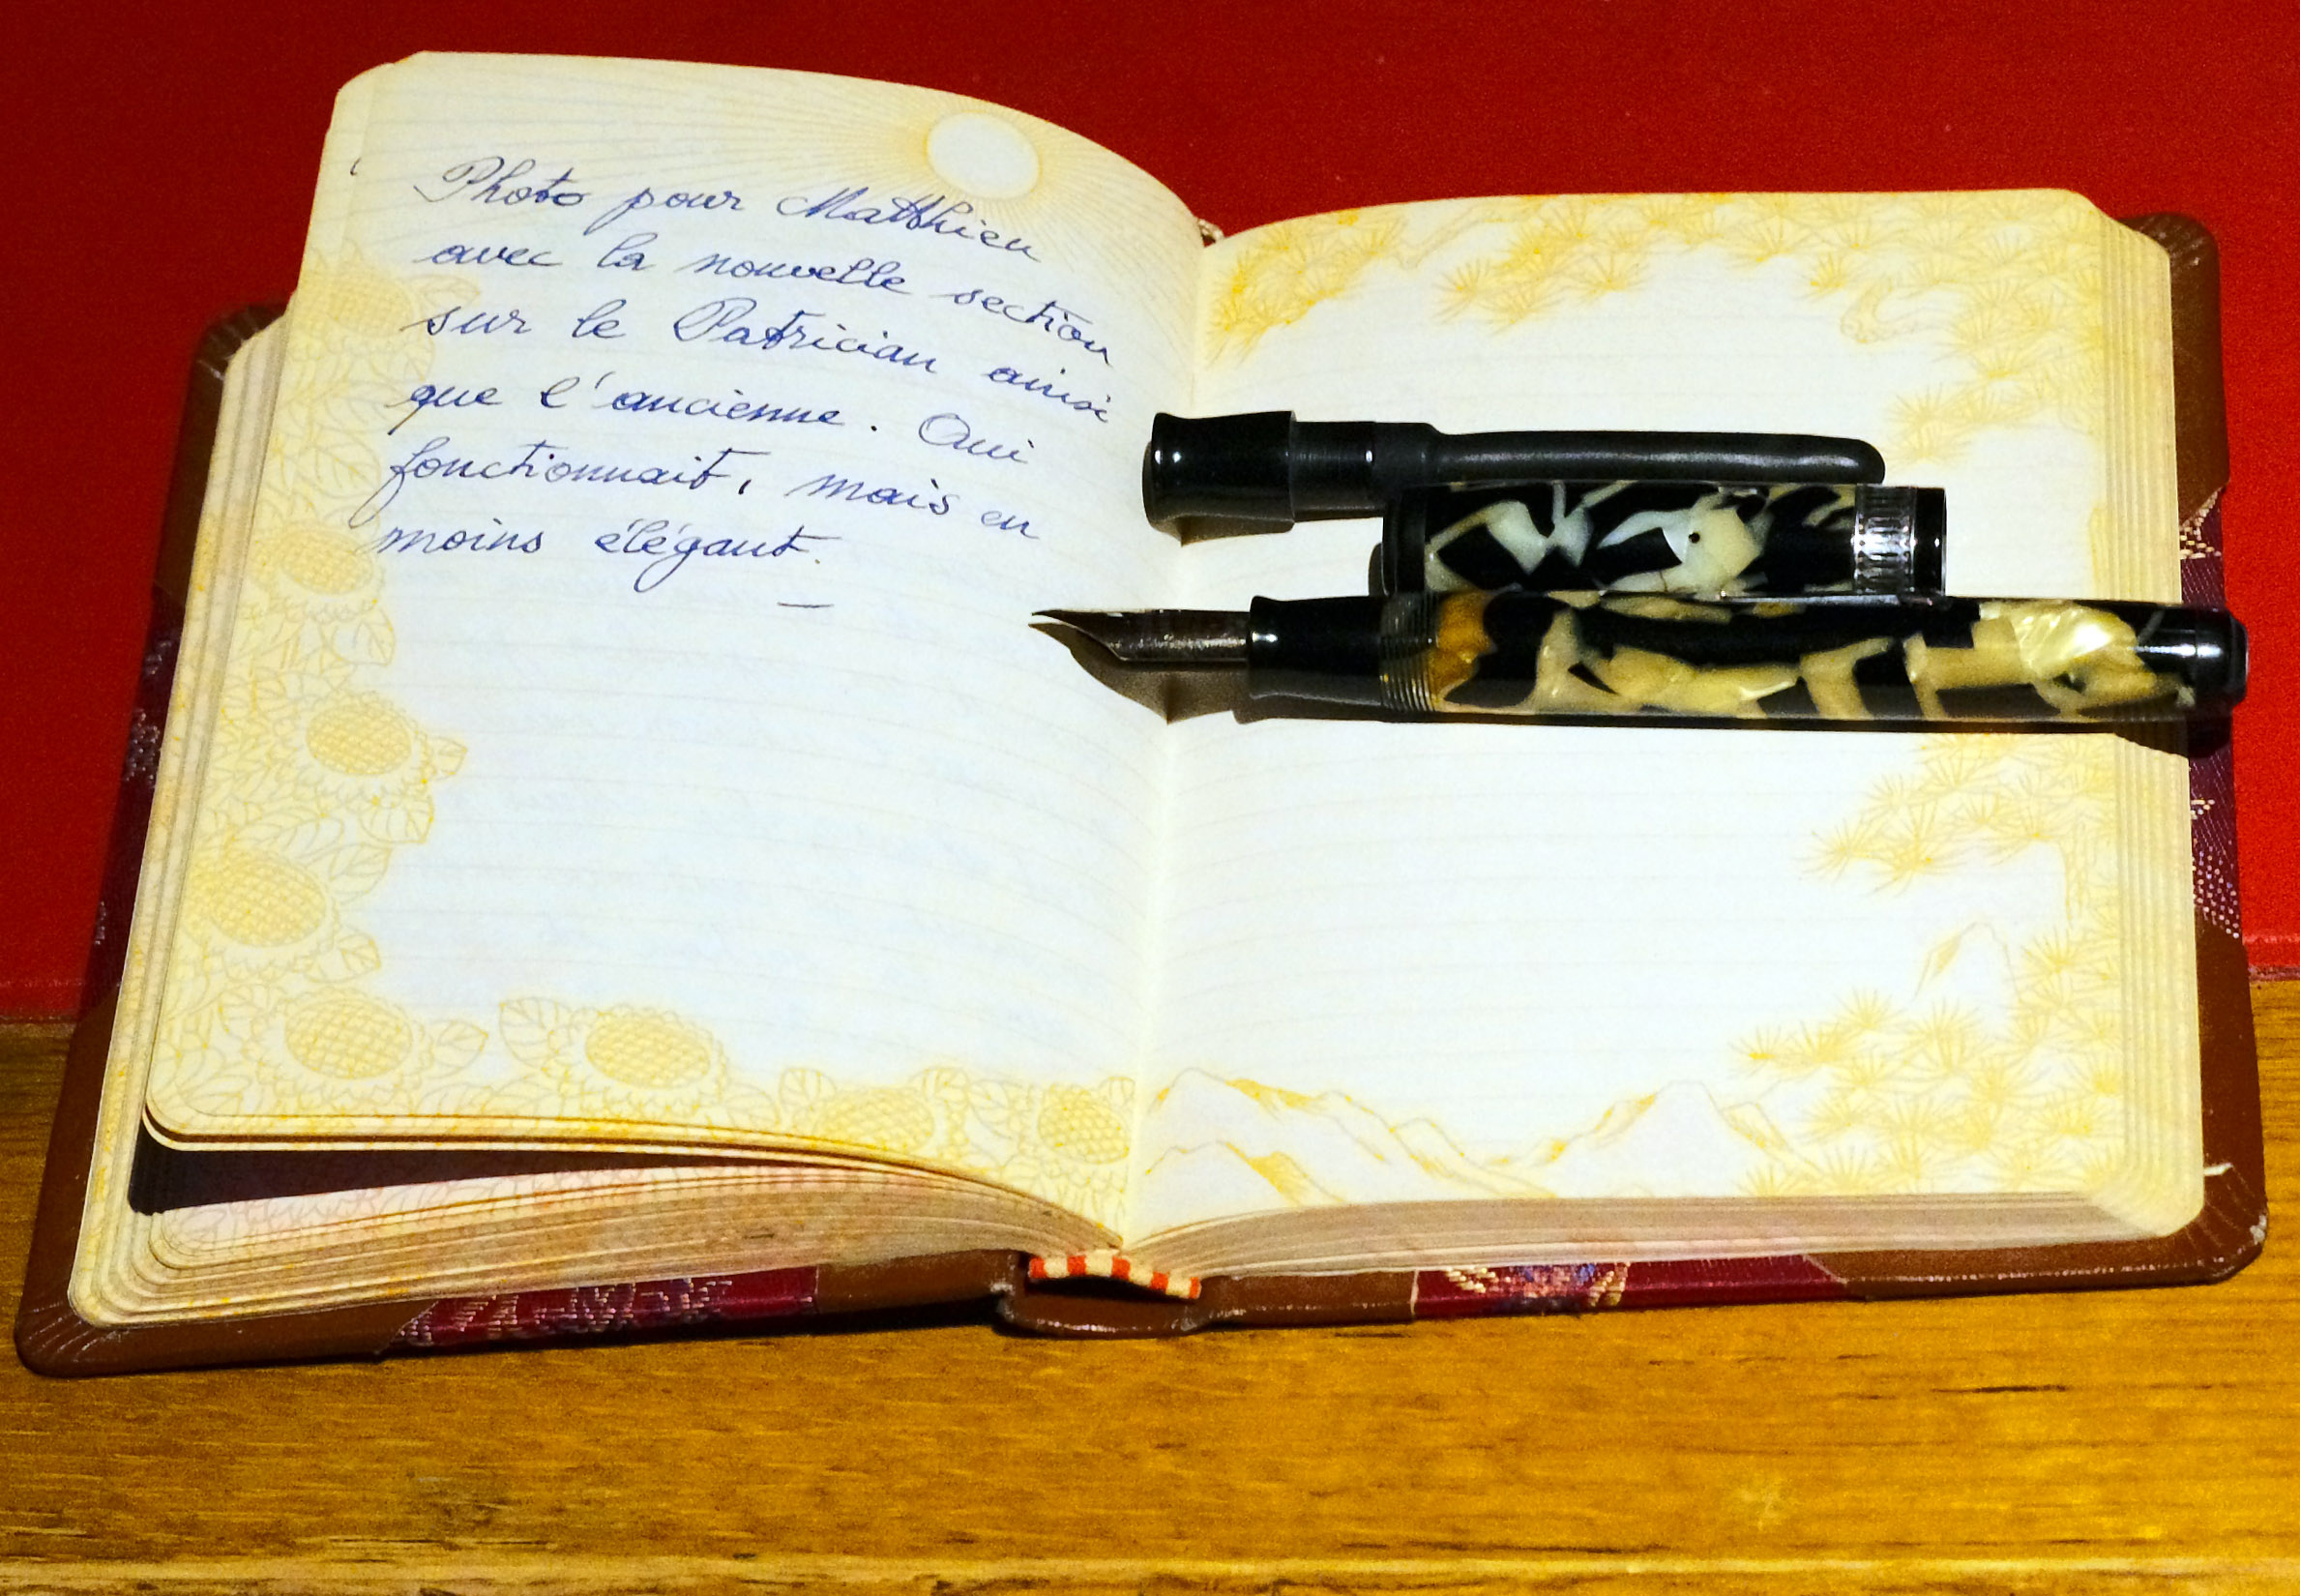 Photo pour Matthieu
avec la nouvelle section
sur le Patrician ainsi
que l'ancienne. Qui
fonctionnait, mais en
moins élégant.